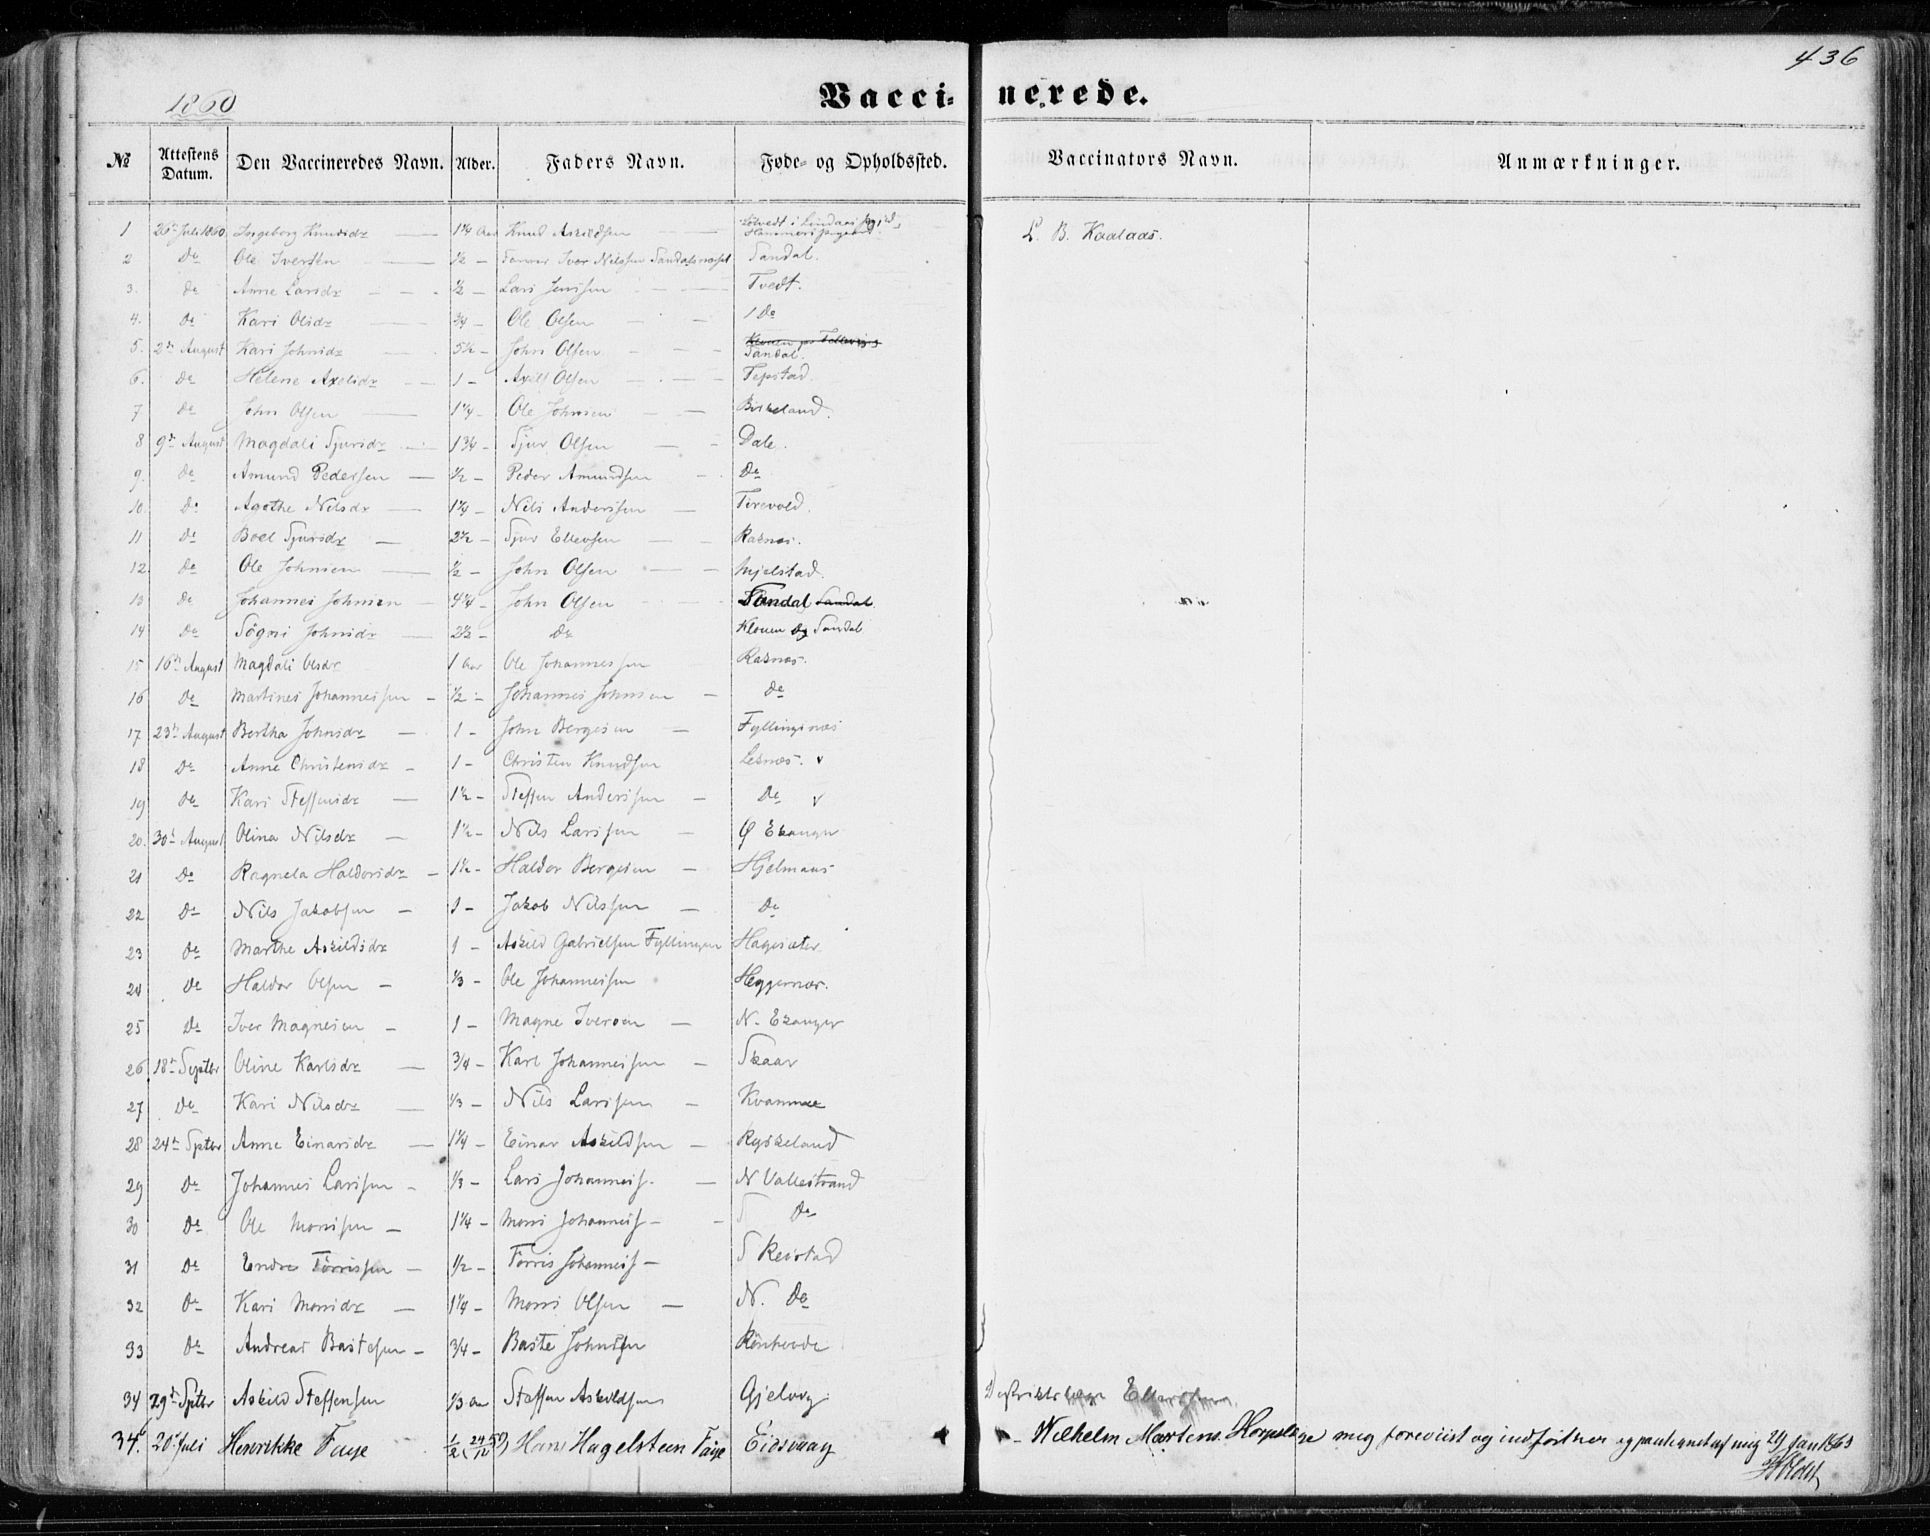 436
1860
Vacci- nerede.
№ Attestens Datum. Den Vaccineredes Navn. Alder. Faders Navn. Føde- og Opholdssted. Vaccinators Navn. Anmærkninger.
1 26de Juli 1860 Ingeborg Knudsdr 1¼ Aar Knud Askildsen L. B. Kaalaas.
2 do Ole Iversen ½ - Iver Nilssen Sandal.
3. do Anne Larsdr ½ - Lars Jensen Tvedt.
4. do Kari Olsdr ¾ - Ole Olsen do
5. 2de August Kari Johnsdr 5½ - John Olsen Sandal.
6. do Helene Axelsdr 1 - Axel Olsen Tepstad.
7 do John Olsen 1¼ - Ole Johnsen Birkeland.
8 9de August Magdali Sjursdr 1¾ - Sjur Olsen Dale.
9. do Amund Pedersen ½ - Peder Amundsen do
10. do Agathe Nilsdr 1¼ - Nils Anderssen Tirevold.
11 do Boel Sjursdr 2½ - Sjur Ellevsen Raknes.
12. do Ole Johnsen ½ - John Olsen Mjelstad.
13 do Johannes Johnsen 4¼ - John Olsen Sandal Sandal.
14 do Sögni Johnsdr 2½ - do Klouen og Sandal
15 16de August Magdali Olsdr 1 Aar Ole Johannessen Raknes.
16 do Martines Johannessen ½ - Johannes Johnsen do
17 23de August Bertha Johnsdr 1 - John Bergesen Fyllingsnes
18 do Anne Christensdr 1 - Christen Knudsen Leknes. v
19 do Kari Steffensdr 1½ - Steffen Anderssen do v
20. 30de August Olina Nilsdr 1½ - Nils Larssen Ø Ekanger
21 do Ragnela Haldorsdr 1½ - Haldor Bergesen Hjelmaas
22 do Nils Jakobsen 1 - Jakob Nilssen do
23 do Marthe Askildsdr 1 - Askild Gabrielsen Fyllingen Hagesæter
24 do Haldor Olsen ⅓ - Ole Johannessen Heggernæs.
25 do Iver Magnesen 1 - Magne Iversen N. Ekanger
26 18de Septbr Oline Karlsdr ¾ - Karl Johannessen Skaar
27 do Kari Nilsdr ⅓ - Nils Larssen Kvamme
28 24de Sptbr Anne Einarsdr 1¼ - Einar Askildsen Ryskeland
29 do Johannes Larssen ⅓ - Lars Johanness. N Vallestrand
30 do Ole Monssen 1¼ - Mons Johanness - S do
31 do Endre Tørrissen ½ - Tørris Johanness - S Reistad
32 do Kari Monsdr 1¼ - Mons Olsen N. do
33 do Andreas Bastesen ¾ - Baste Johnsen Rönhovde
34 29de Sptbr Askild Steffensen ⅓ Aar Steffen Askildsen Gjelvig Distriktslæge Ellertsen.
34b 20de Juli Henrikke Faye ½ Hans Hagelsteen Faye Eidsvaag Wilhelm Martens. mig foreviist og indført her og paategnet af mig 29 Jan 1863